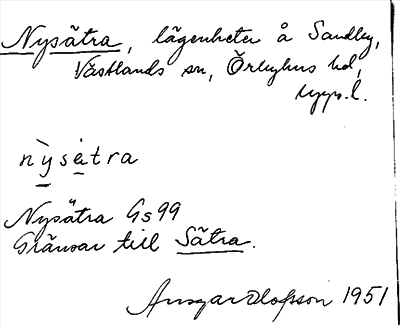 Nysätra, lägenheter å Sandby,
Västlands sn, Örbyhus hd,
Upps. l.
nysetra
Nysätra Gs 99
Gränsar till Sätra.
Ansgar Olofsson 1951